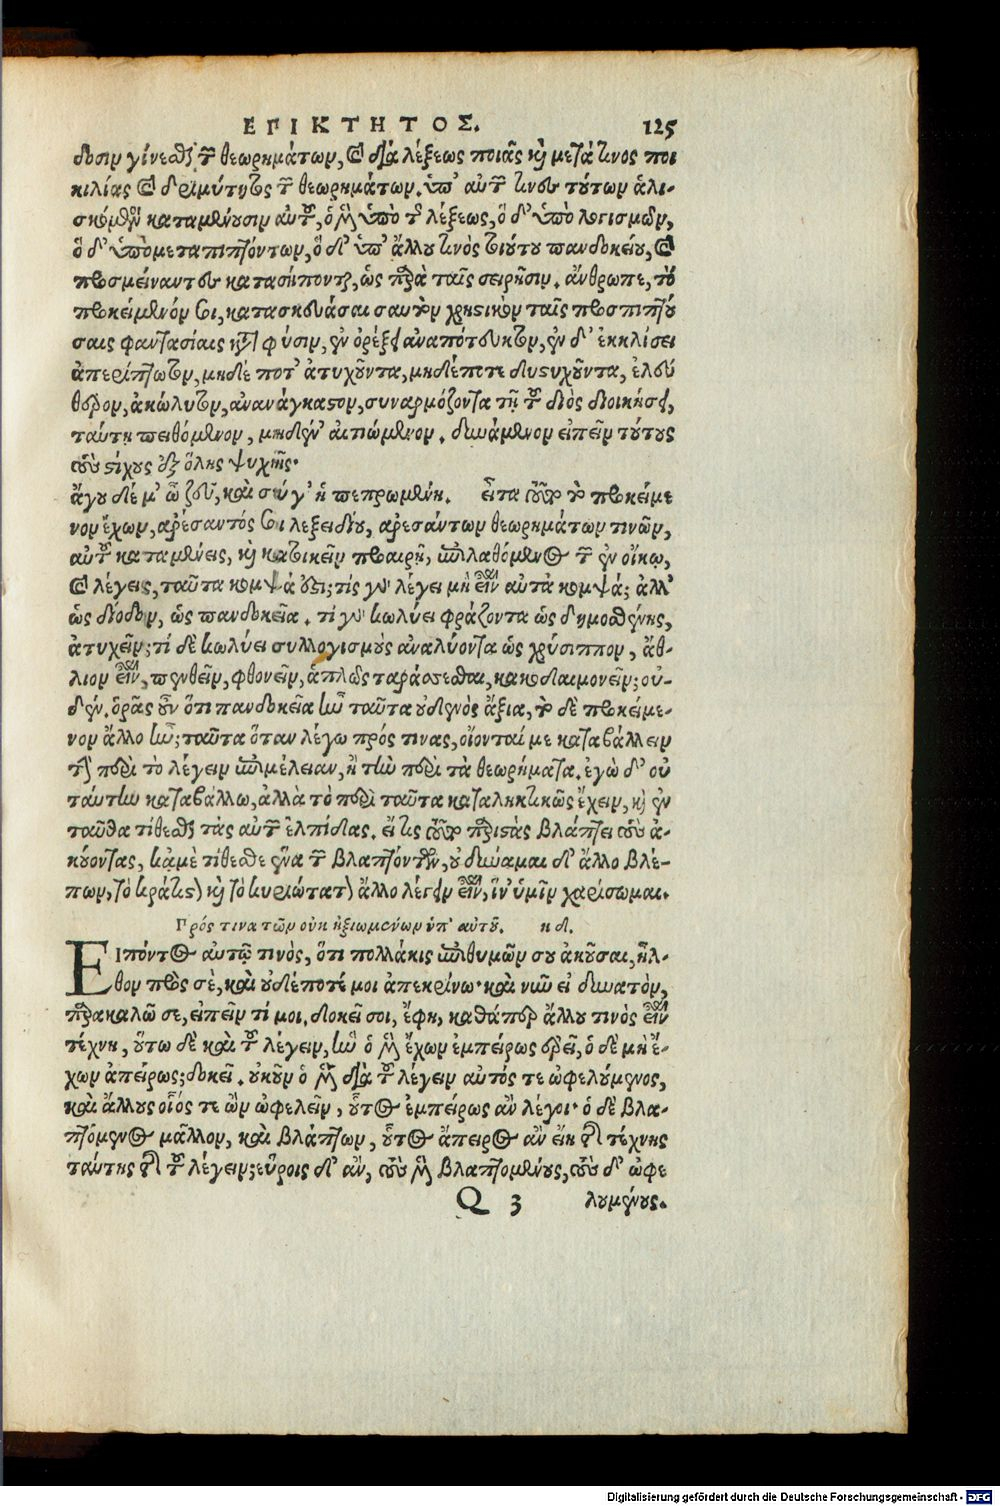 ΕΠΙΚΤΗΤΟΣ. 125
δοσιν γίνεσθαι τῶν θεωρημάτων, καὶ διὰ λέξεως ποιᾶς καὶ μετά τινος ποι
κιλίας καὶ δριμύτητος τῶν θεωρημάτων. ὑπ' αὐτῶν τινες τούτων ἁλι-
σκόμενοι καταμένουσιν αὐτοῦ, ὁ μὲν ὑπὸ τῆς λέξεως, ὁ δ' ὑπὸ λογισμῶν,
ὁ δ' ὑπὸ μεταπιπτόντων, ὁ δ' ὑπ' ἄλλου τινὸς τοιούτου πανδοκείου, καὶ
προσμείναντες κατασήπονται, ὡς παρὰ ταῖς σειρῆσιν. ἄνθρωπε, τὸ
προκείμενόν σοι, κατασκευάσαι σαυτὸν χρηστικὸν ταῖς προσπιπτού
σαις φαντασίαις κατὰ φύσιν, ἐν ὀρέξει ἀναπότευκτον, ἐν δ' ἐκκλίσει
ἀπερίπτωτον, μηδέ ποτ' ἀτυχοῦντα, μηδέποτε δυστυχοῦντα, ἐλεύ
θερον, ἀκώλυτον, ἀνανάγκαστον, συναρμόζοντα τῇ τοῦ διὸς διοικήσει,
ταύτῃ πειθόμενον, μηδὲν αἰτιώμενον. δυνάμενον εἰπεῖν τούτους
τοὺς στίχους ἐξ ὅλης ψυχῆς·
ἄγου δέ μ' ὦ ζεῦ, καὶ σύ γ' ἡ πεπρωμένη. εἶτα τοῦτο τὸ προκείμε
νον ἔχων, ἀρέσαντός σοι λεξειδίου, ἀρεσάντων θεωρημάτων τινῶν,
αὐτοῦ καταμένεις, καὶ κατοικεῖν προαιρῇ, ἐπιλαθόμενος τῶν ἐν οἴκῳ,
καὶ λέγεις, ταῦτα κομψά ἐστι; τίς γὰρ λέγει μὴ εἶναι αὐτὰ κομψά; ἀλλ'
ὡς δίοδον, ὡς πανδοκεῖα. τί γὰρ κωλύει φράζοντα ὡς δημοσθένης,
ἀτυχεῖν; τί δὲ κωλύει συλλογισμοὺς ἀναλύοντα ὡς χρύσιππον, ἄθ-
λιον εἶναι, πενθεῖν, φθονεῖν, ἁπλῶς ταράσσεσθαι, κακοδαιμονεῖν; οὐ-
δέν. ὁρᾷς οὖν ὅτι πανδοκεῖα ἦν ταῦτα οὐδενὸς ἄξια, τὸ δὲ προκείμε-
νον ἄλλο ἦν; ταῦτα ὅταν λέγω πρός τινας, οἴονταί με καταβάλλειν
τὴν περὶ τὸ λέγειν ἐπιμέλειαν, ἢ τὴν περὶ τὰ θεωρήματα. ἐγὼ δ' οὐ
ταύτην καταβάλλω, ἀλλὰ τὸ περὶ ταῦτα καταληκτικῶς ἔχειν, καὶ ἐν
ταῦθα τίθεσθαι τὰς αὑτῶν ἐλπίδας. εἴ τις τοῦτο παριστὰς βλάπτει τοὺς ἀ-
κούοντας, κἀμὲ τίθεσθε ἕνα τῶν βλαπτόντων, οὐ δύναμαι δ' ἄλλο βλέ-
πων, τὸ κράτιστον καὶ τὸ κυριώτατον ἄλλο λέγειν εἶναι, ἵν' ὑμῖν χαρίσωμαι.
Πρός τινα τῶν οὐκ ἠξιωμένων ὑπ' αὐτοῦ. κδ.
ΕΙπόντος αὐτῷ τινὸς, ὅτι πολλάκις ἐπιθυμῶν σου ἀκοῦσαι, ἦλ-
θον πρὸς σὲ, καὶ οὐδέποτέ μοι ἀπεκρίνω· καὶ νῦν εἰ δυνατὸν,
παρακαλῶ σε, εἰπεῖν τί μοι. δοκεῖ σοι, ἔφη, καθάπερ ἄλλου τινὸς εἶναι
τέχνη, οὕτω δὲ καὶ τοῦ λέγειν, ἣν ὁ μὲν ἔχων ἐμπείρως ἐρεῖ, ὁ δὲ μὴ ἔ-
χων ἀπείρως; δοκεῖ. οὐκοῦν ὁ μὲν διὰ τοῦ λέγειν αὐτός τε ὠφελούμενος,
καὶ ἄλλους οἷός τε ὢν ὠφελεῖν, οὗτος ἐμπείρως ἂν λέγοι· ὁ δὲ βλα-
πτόμενος μᾶλλον, καὶ βλάπτων, οὗτος ἄπειρος ἂν εἴη τῆς τέχνης
ταύτης τῆς τοῦ λέγειν; εὕροις δ' ἂν, τοὺς μὲν βλαπτομένους, τοὺς δ' ὠφε
Q 3 λουμένους.
Digitalisierung gefördert durch die Deutsche Forschungsgemeinschaft - DFG